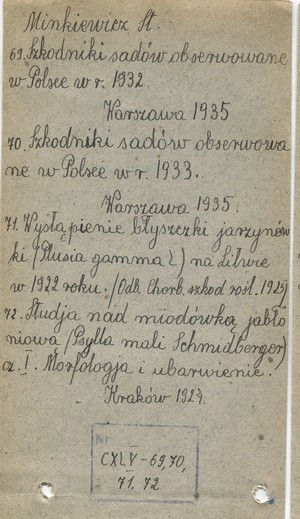 Minkiewicz St.
69. Szkodniki sadów obserwowane
w Polsce w r. 1932.
Warszawa 1935
70. Szkodniki sadów obserwowa
ne w Polsce w r. 1933.
Warszawa 1935.
71. Wystąpienie błyszczki jarzynów
ki (Plusia gamma L) na Litwie
w 1922 roku. /Odb. Chorb. szkod rośl. 1925/
72. Studja nad miodówką jabło
niową (Psylla mali Schmidberger)
cz. I. Morfologja i ubarwienie.
Kraków 1927.
Nr
CXLV - 69, 70,
71. 72